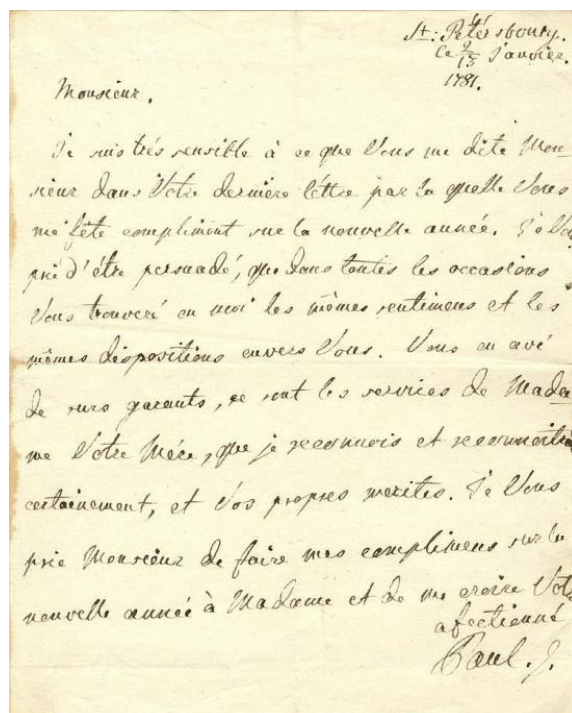 St: Pétersbourg.
ce 2/13 Janvier.
1781.
Monsieur.
Je suis trés sensible à ce que Vous me dite Mon-
sieur dans Votre derniere léttre par la quelle Vous
me fête compliment sur la nouvelle année. Je Vou
prie d'étre persuadé, que dans toutes les occasions
Vous trouveré en moi les mêmes sentimens et les
mêmes dispositions envers Vous. Vous en avé
de surs garants, ce sont les services de Mada-
me Votre Mére, que je reconnois et reconnoitra
certainement, et Vos propres merites. Je Vous
prie Monsieur de faire mes complimens sur la
nouvelle année à Madame et de me croire Votr
afectionné
Paul.